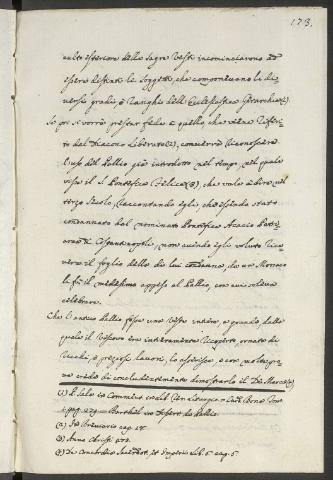 173.
culto esteriore delle Sagre Vesti incominciarono ad
essere distinti li Soggetti, che componevano li di-
versi gradi, e ranghi dell' Ecclesiastica Gerarchia (1)
Se poi si vorrà prestar fede a quello, che viene riferi-
to dal Diacono Liberato (2), converrà riconoscere
l'uso del Pallio già introdotto nel tempo, nel quale
visse il S. Pontefice Felice (3), che vale a dire nel
terzo Secolo, raccontando egli, che essendo stato
condannato dal nominato Pontefice Acacio Patri-
arca di Costantinopoli, e non avendo egli voluto rice-
vere il foglio della di lui condanna, da un Monaco
li fu il medesimo appeso al Pallio, con cui soleva
celebrare.
Che l'antico Pallio fosse una veste intiera, e grande dalla
quale il Vescovo era interamente ricoperto ornata di
ricchi, e preziosi lavori, lo asserisce, e con molte
credo di concludentemente dimostrarlo il De Marca (4)
(2) In Breviario cap. 18
(3) Anno Christi
(4) De Concordia Sacerdot. et Imperii Lib. 6 cap. 6.